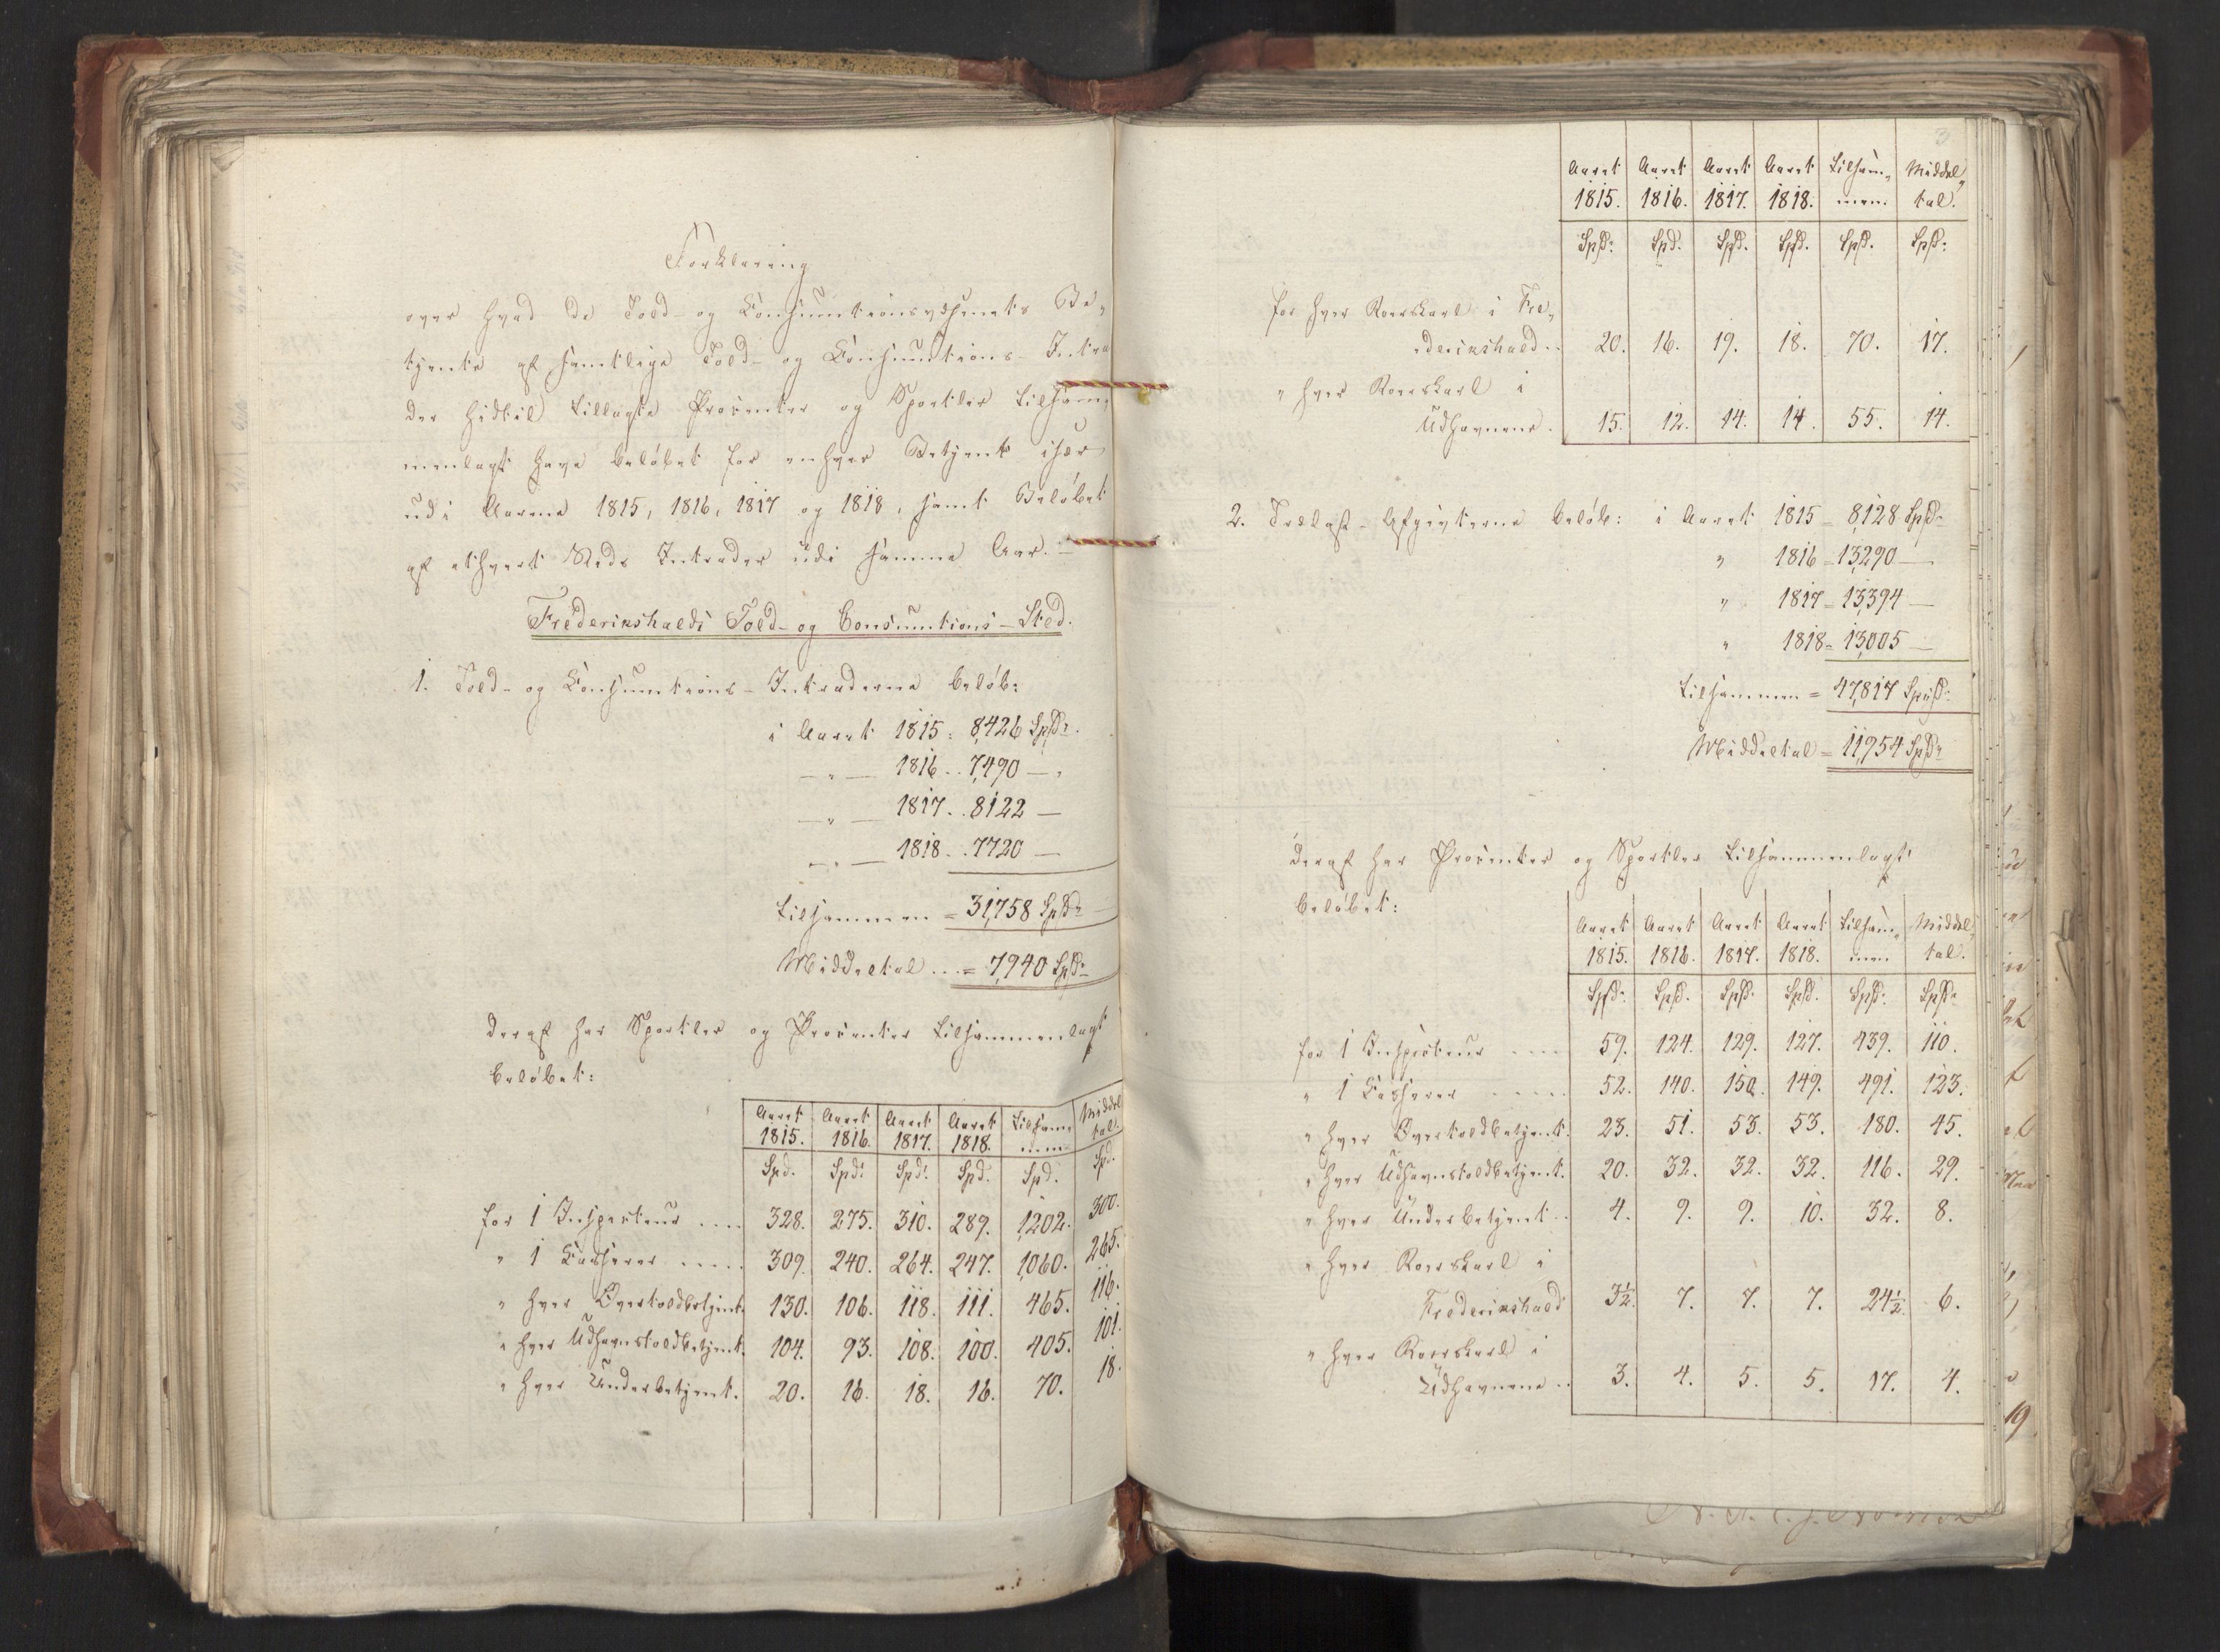 Forklaring
over hvad de Told- og Consumtionsvæsenets Be-
tjente af samtlige Told- og Consumtions-Intra
der hidtil tillagte Procenter og Sportler tilsam-
menlagt have beløbet for enhver Betjent især
udi Aarene 1815, 1816, 1817 og 1818, samt Beløbet
af ethvert Steds Intrader udi samme Aar.
Frederikshalds Told- og Consumtions-Sted.
1. Told- og Consumtions-Intraderne beløb:
i Aaret 1815 = 8,426 Spd.
— " — 1816 .. 7,490 —
— " — 1817 .. 8122 —
— " — 1818 .. 7720 —
tilsammen = 31,758 Spd.
Middeltal ... = 7,940 Spd.
deraf har Sportler og Procenter tilsammenlagt
beløbet:
Aaret 1815. Aaret 1816. Aaret 1817. Aaret 1818. tilsam- men Middel tal.
Spd. Spd. Spd. Spd. Spd. Spd.
for 1 Inspecteur .... 328. 275. 310. 289. 1,202. 300.
" 1 Casserer ..... 309. 240. 264. 247. 1,060. 265.
" hver Overtoldbetjent. 130. 106. 118. 111. 465. 116.
" hver Udhavnstoldbetjent. 104. 93. 108. 100. 405. 101.
" hver Underbetjent. 20. 16. 18. 16. 70. 18.
3
Aaret 1815. Aaret 1816. Aaret 1817. Aaret 1818. tilsam- men. Middel- tal.
Spd. Spd. Spd. Spd. Spd. Spd.
for hver Roerskarl i Fre-
derikshald .. 20. 16. 19. 18. 70. 17.
" hver Roerskarl i
Udhavnene . 15. 12. 14. 14. 55. 14.
2. Trælast-Afgivterne beløb: i Aaret 1815 = 8,128 Spd.
" 1816 = 13,290 —
" 1817 = 13,394 —
" 1818 = 13,005 —
tilsammen = 47,817 Spd.
Middeltal = 11,954 Spd.
deraf har Procenter og Sportler tilsammenlagt
beløbet:
Aaret 1815. Aaret 1816. Aaret 1817. Aaret 1818. tilsam- men Middel- tal.
Spd. Spd. Spd. Spd. Spd. Spd.
for 1 Inspecteur .... 59. 124. 129. 127. 439. 110.
" 1 Casserer ..... 52. 140. 150. 149. 491. 123.
" hver Overtoldbetjent. 23. 51. 53. 53. 180. 45.
" hver Udhavnstoldbetjent. 20. 32. 32. 32. 116. 29.
" hver Underbetjent .. 4. 9. 9. 10. 32. 8.
" hver Roerskarl i
Frederikshald 3½. 7. 7. 7. 24½. 6.
" hver Roerskarl i
Udhavnene .. 3. 4. 5. 5. 17. 4.
19